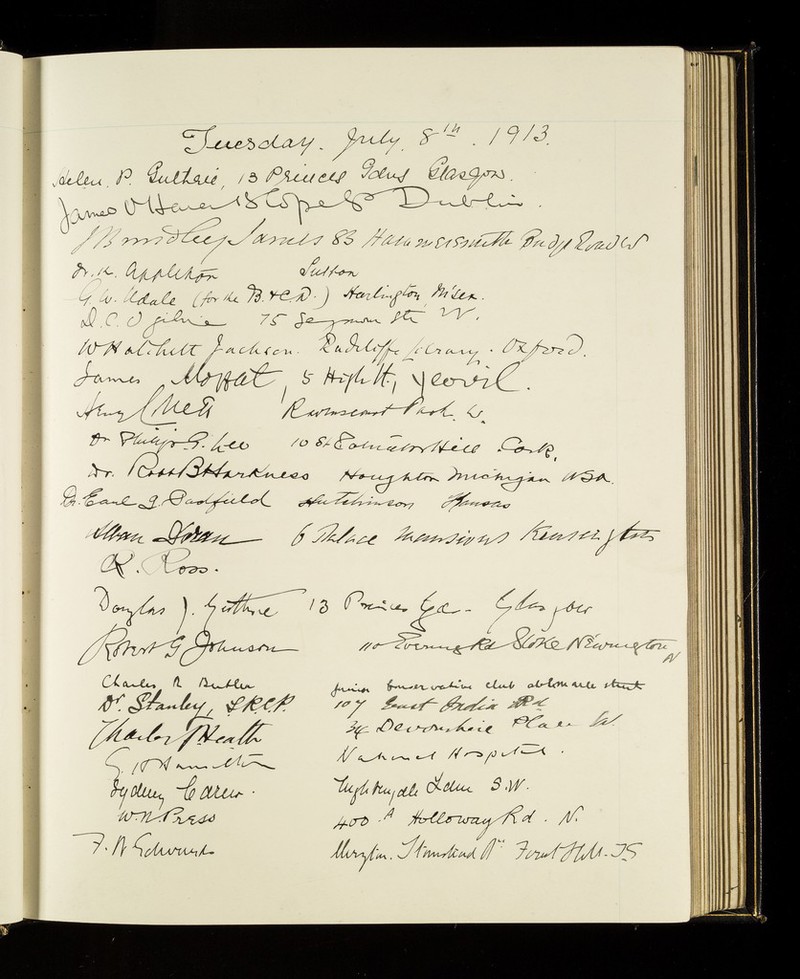 Tuesday. July. 8th. 1913.
Helen. P. Guthrie, 13 Princes Gdns Glasgow.
James Dublin.
James 83 Hammersmith Bridge Road W
Dr. H. Appleton Sutton
G. W. Udale (for the B. & C.D.) Harlington, M'sex.
D. C. Ogilvie 75 Seymour Str W.
W Hatchett Jackson. Radcliffe Library. Oxford.
James Moffat, 5 High St, Yeovil.
Henry Ravenscourt Park. W.
Dr Philip G. Lee 10 St Hill Cork.
Dr. Ross B Harkness Houghton Michigan USA.
Dr. Earl G. Padfield Hutchinson Kansas
Alban Doran 6 Palace Mansions Kensington
R. Ross.
Douglas J. Guthrie 13 Princes Gdns - Glasgow
Robert G Johnson 110 Evering Rd Stoke Newington N
Charles R Butler Junior Conservative Club Albemarle Street
Dr. Stanley, L.R.C.P. 107 East India Rd
Charles Heath 34 Devonshire Place W
G. Hamilton National Hospital.
Sydney Carew. Nightingale Lane S.W.
W.N. Press 400 A Holloway Rd. N.
F. W Edwards Stanstead Rd Forest Hill. S.E